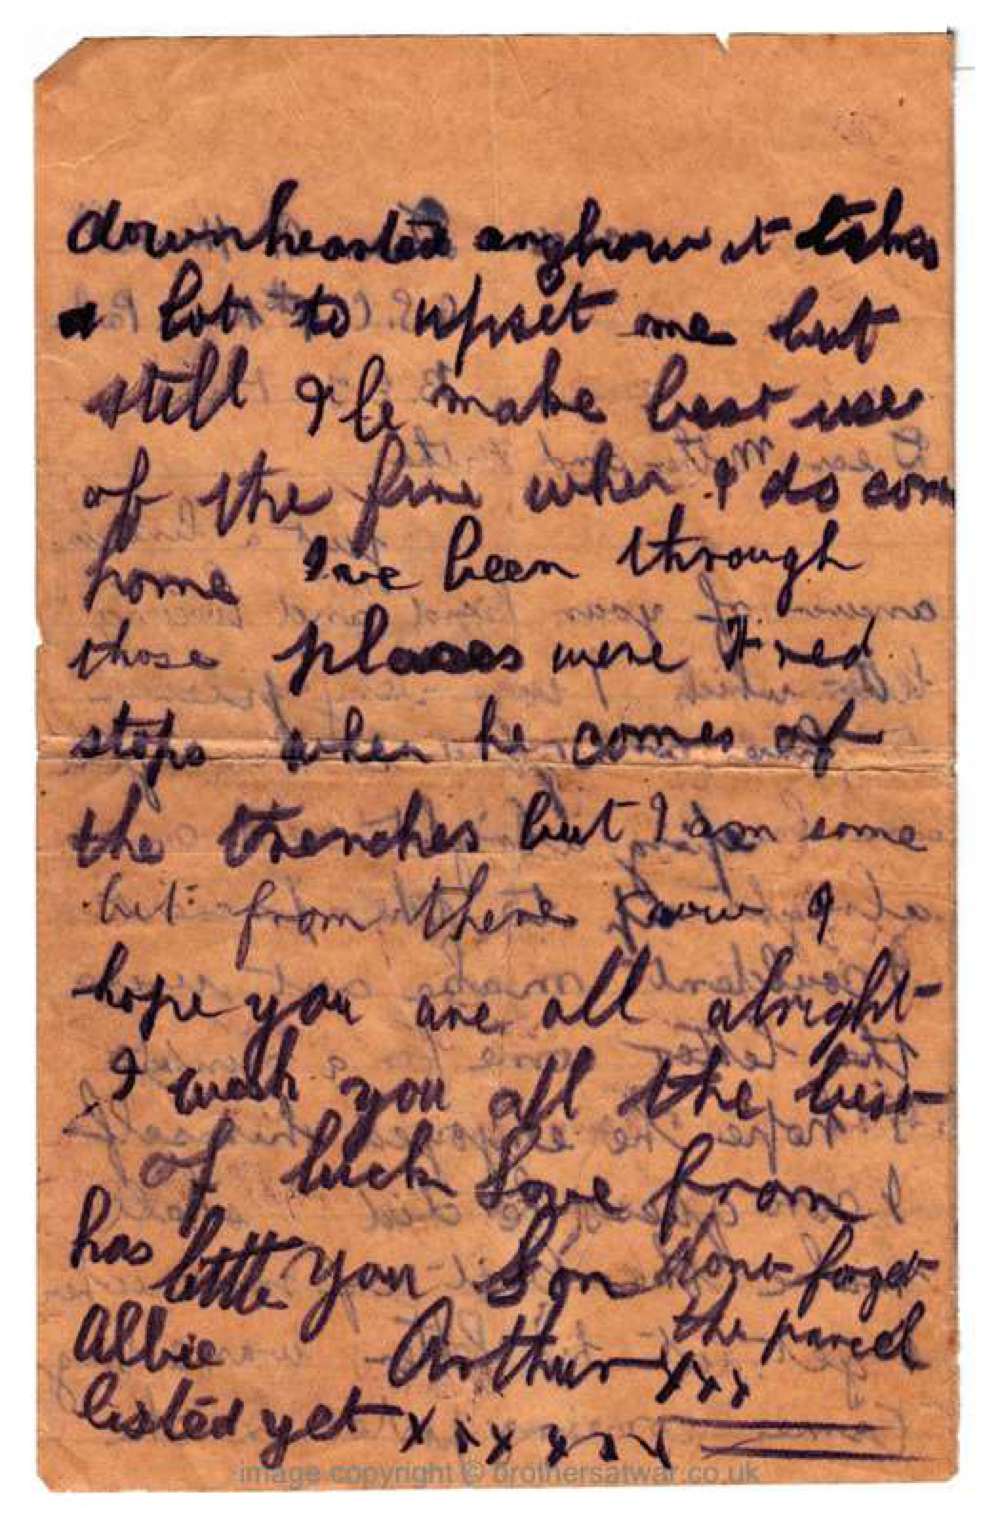 downhearted anyhow it takes
a lot to upset me but
still I le make best use
of the fine when I do com
home Ive been through
those places were Fred
stops when he comes of
the trenches but I am some
bit from there now I
hope you are all alright
I wish you all the best
of luck Love from
has little your Son dont forget
Albie Arthur xxx the parcel
listed yet x x x x x x x
image copyright © brothersatwar.co.uk